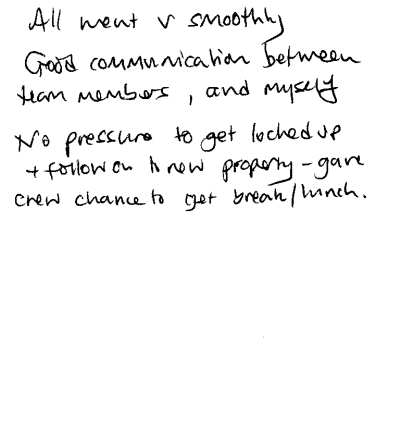 All went v smoothly
Good communication between
team members, and myself
No pressure to get locked up
+ follow on to new property - gave
crew chance to get break/lunch.